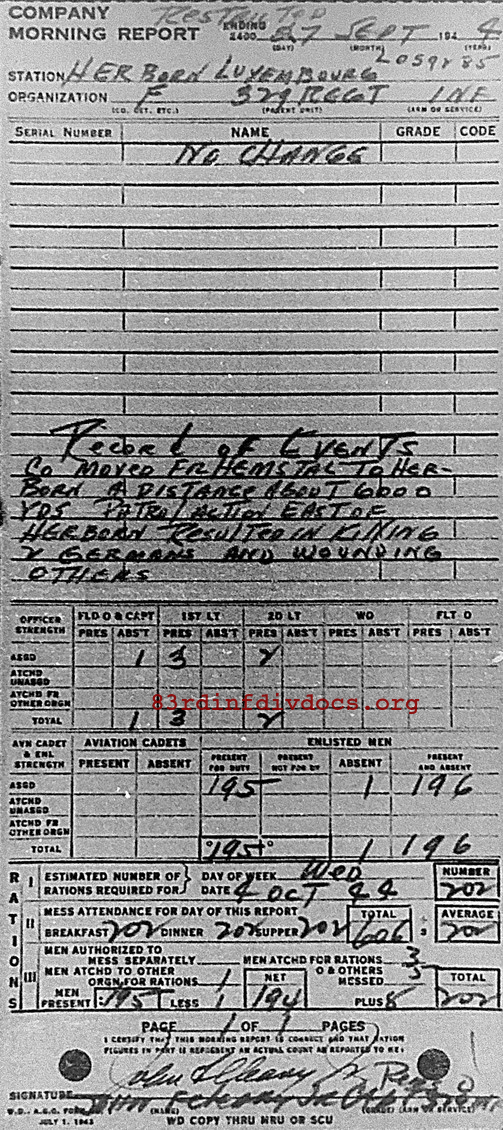 COMPANY
MORNING REPORT
ENDING 2400 27 SEPT 194 4
(DAY) (MONTH) (YEAR)
STATION HERBORN LUXEMBOURG L059785
ORGANIZATION F 329 REGT INF
(CO. DET. ETC.) (PARENT UNIT) (ARM OR SERVICE)
SERIAL NUMBER NAME GRADE CODE
NO CHANGE
RECORD OF EVENTS
CO MOVED FR HEMSTAL TO HER-
BORN A DISTANCE ABOUT 6000
YDS PATROL ACTION EAST OF
HERBORN RESULTED IN KILLING
2 GERMANS AND WOUNDING
OTHERS
OFFICER STRENGTH FLD O & CAPT 1ST LT 2D LT WO FLT O
PRES ABS'T PRES ABS'T PRES ABS'T PRES ABS'T PRES ABS'T
ASGD 1 3 2
ATCHD UNASGD
ATCHD FR OTHER ORGN
83rdinfdivdocs.org
TOTAL 1 3 2
AVN CADET & ENL STRENGTH AVIATION CADETS ENLISTED MEN
PRESENT ABSENT PRESENT FOR DUTY PRESENT NOT FOR DY ABSENT PRESENT AND ABSENT
ASGD 195 1 196
ATCHD UNASGD
ATCHD FR OTHER ORGN
TOTAL 195 1 196
RATIONS
I ESTIMATED NUMBER OF RATIONS REQUIRED FOR DAY OF WEEK Wed NUMBER
DATE 4 OCT 44 202
II MESS ATTENDANCE FOR DAY OF THIS REPORT TOTAL ÷ 3 AVERAGE
BREAKFAST 202 DINNER 202 SUPPER 202 606 202
III MEN AUTHORIZED TO MESS SEPARATELY MEN ATCHD FOR RATIONS 3
MEN ATCHD TO OTHER ORGN FOR RATIONS 1 NET O & OTHERS MESSED 5 TOTAL
MEN PRESENT 195 LESS 1 194 PLUS 8 202
PAGE 1 OF 1 PAGES
I CERTIFY THAT THIS MORNING REPORT IS CORRECT AND THAT RATION
FIGURES IN PART III REPRESENT AN ACTUAL COUNT AS REPORTED TO ME:
SIGNATURE
W.D., A.G.O. FORM (NAME) (GRADE) (ARM OR SERVICE)
JULY 1, 1943 WD COPY THRU MRU OR SCU